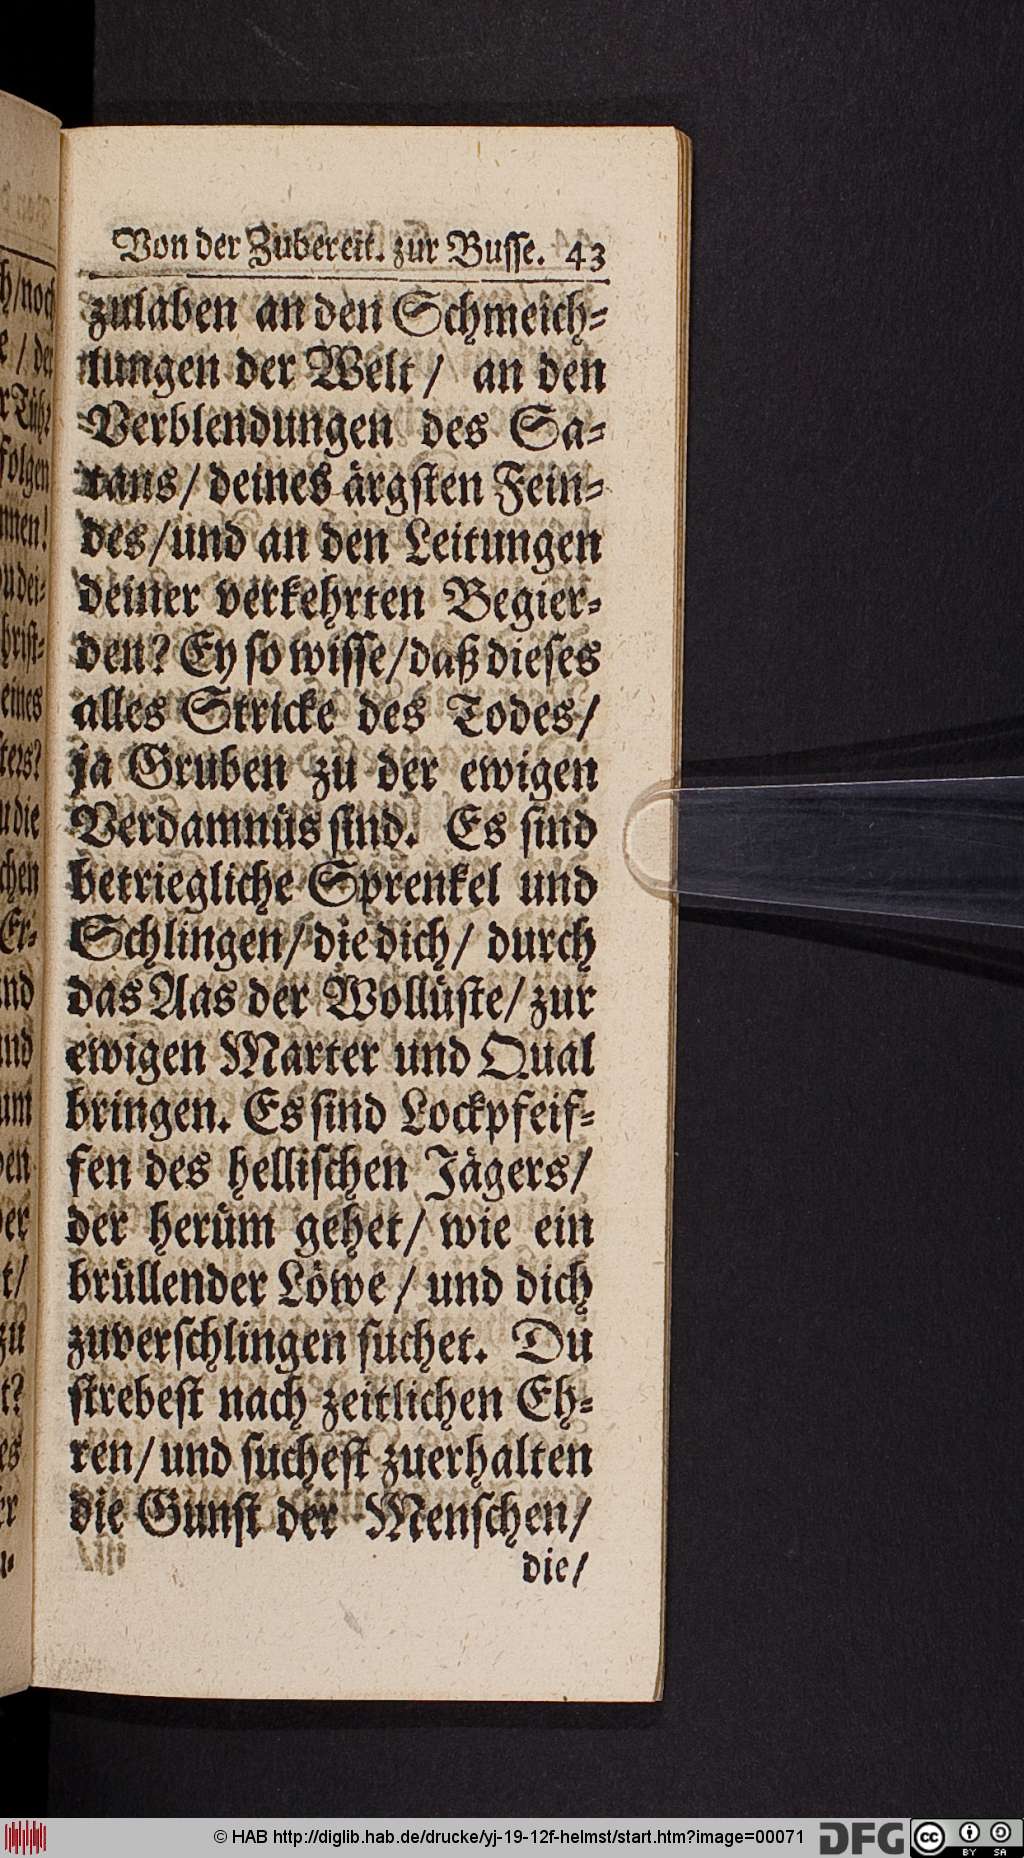 Von der Zubereit. zur Busse. 43
zulaben an den Schmeich-
lungen der Welt / an den
Verblendungen des Sa-
tans / deines ärgsten Fein-
des / und an den Leitungen
deiner verkehrten Begier-
den? Ey so wisse / daß dieses
alles Stricke des Todes /
ja Gruben zu der ewigen
Verdamnüs sind. Es sind
betriegliche Sprenkel und
Schlingen / die dich / durch
das Aas der Wollüste / zur
ewigen Marter und Qual
bringen. Es sind Lockpfeif-
fen des hellischen Jägers /
der herüm gehet / wie ein
brüllender Löwe / und dich
zuverschlingen suchet. Du
strebest nach zeitlichen Eh-
ren / und suchest zuerhalten
die Gunst der Menschen /
die /
© HAB http://diglib.hab.de/drucke/yj-19-12f-helmst/start.htm?image=00071
DFG
cc BY SA